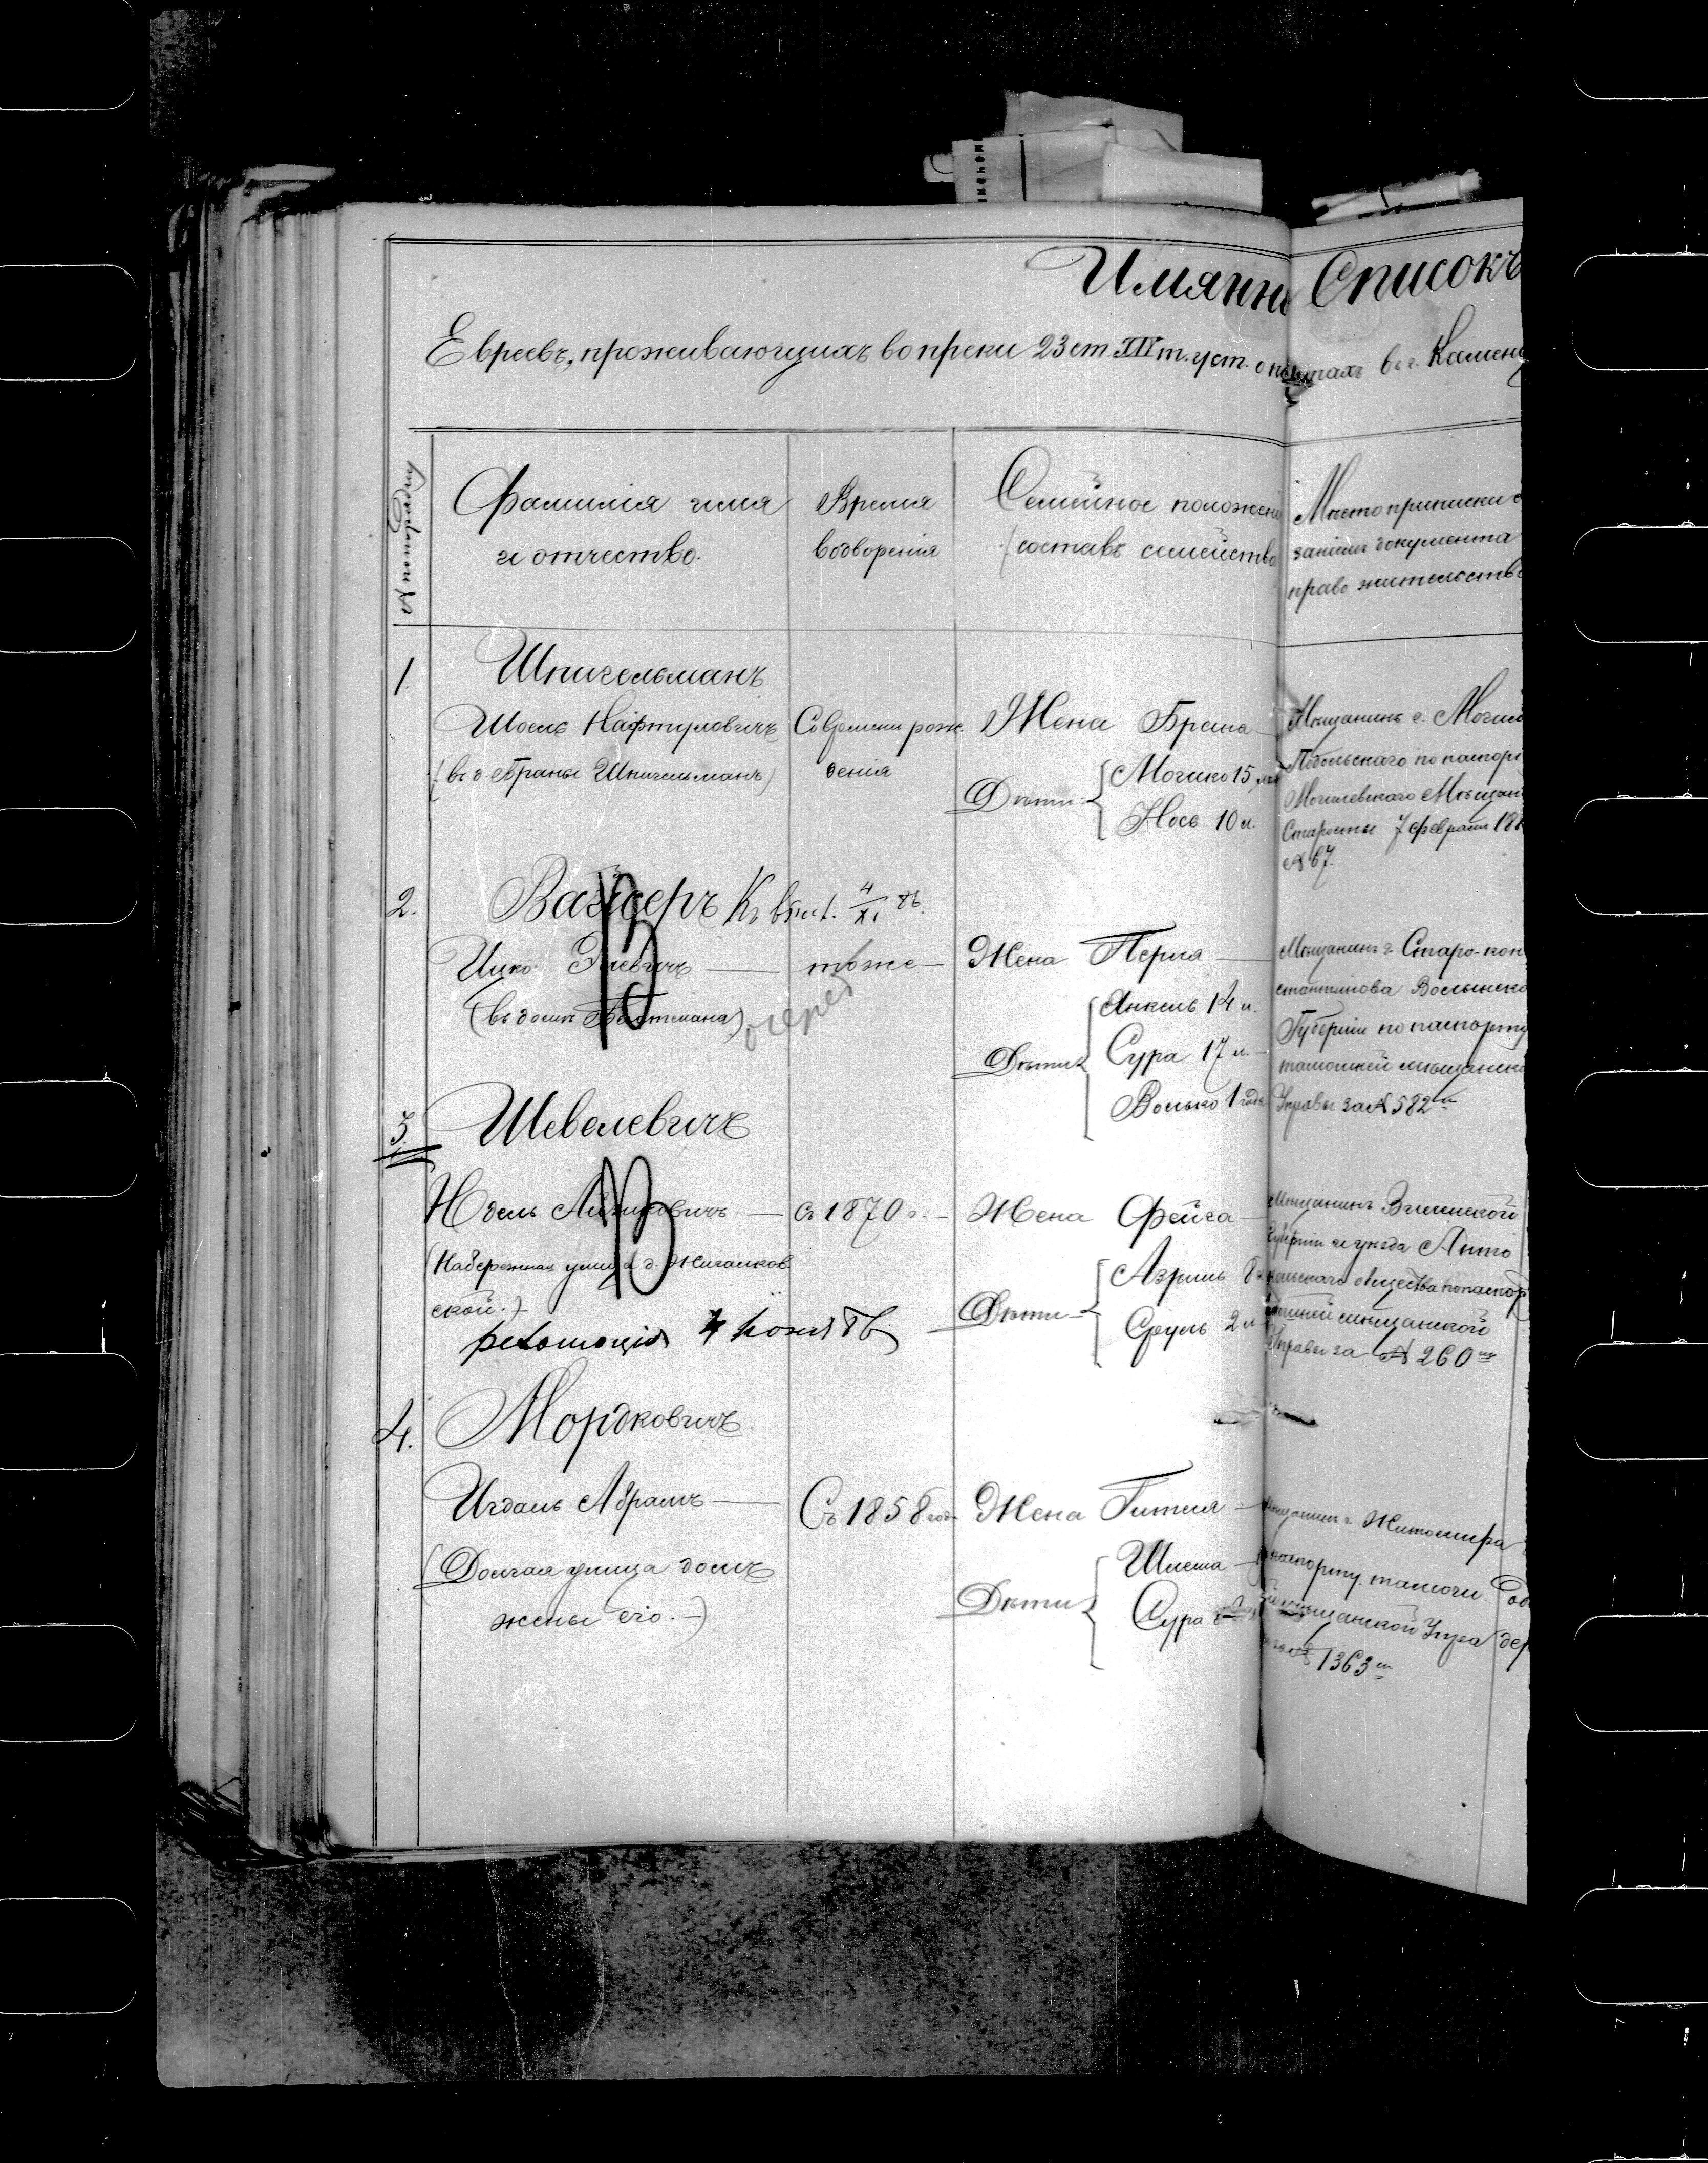 Имянн Списокъ
Евреевъ, проживающихъ вопреки 23 ст. XIV т. уст. о паспортахъ въ г. Камен
№ по порядку
Фамилія имя
и отчество.
Время
водворенія
Семейное положені
(составъ семейства
Мѣсто приписки
званіемъ документа
право жительств
1.
Шпигельманъ
Шоель Нафтуловичъ
(въ д. Браны Шпигельманъ)
Со времени рож
денія
Жена Брана
Дѣти:
Мошко 15 лѣт
Нось 10 л.
Мѣщанинъ г. Могил
Подольскаго по паспор
Могилевскаго Мѣщан
Старосты 7 февраля 18
№ 67.
2.
Вайсеръ 4/XI 86.
Ицко
(въ домѣ
тоже
Жена Перля
Дѣти
Янкель 14 л.
Сура 17 л.
Волько 1 года
Мѣщанинъ г. Старо-кон
стантинова Волынско
Губерніи по паспорту
тамошней мѣщанско
Управы за № 582
3.
Шевелевичъ
Юдель
(Набережная улица д.
ской.)
съ 1870 г.
Жена Фейга
Дѣти
Азриль 8
Сруль 2 л
Мѣщанинъ Виленской
Губерніи и уѣзда
общества по паспор
мѣщанской
Управы за № 260
4.
Мордковичъ
Игдаль Абрамъ
(Долгая улица домъ
жены его.)
Съ 1858 год
Жена Гитля
Дѣти
Шлема
Сура
Мѣщанинъ г. Житомира
паспорту
мѣщанской Упра
1363